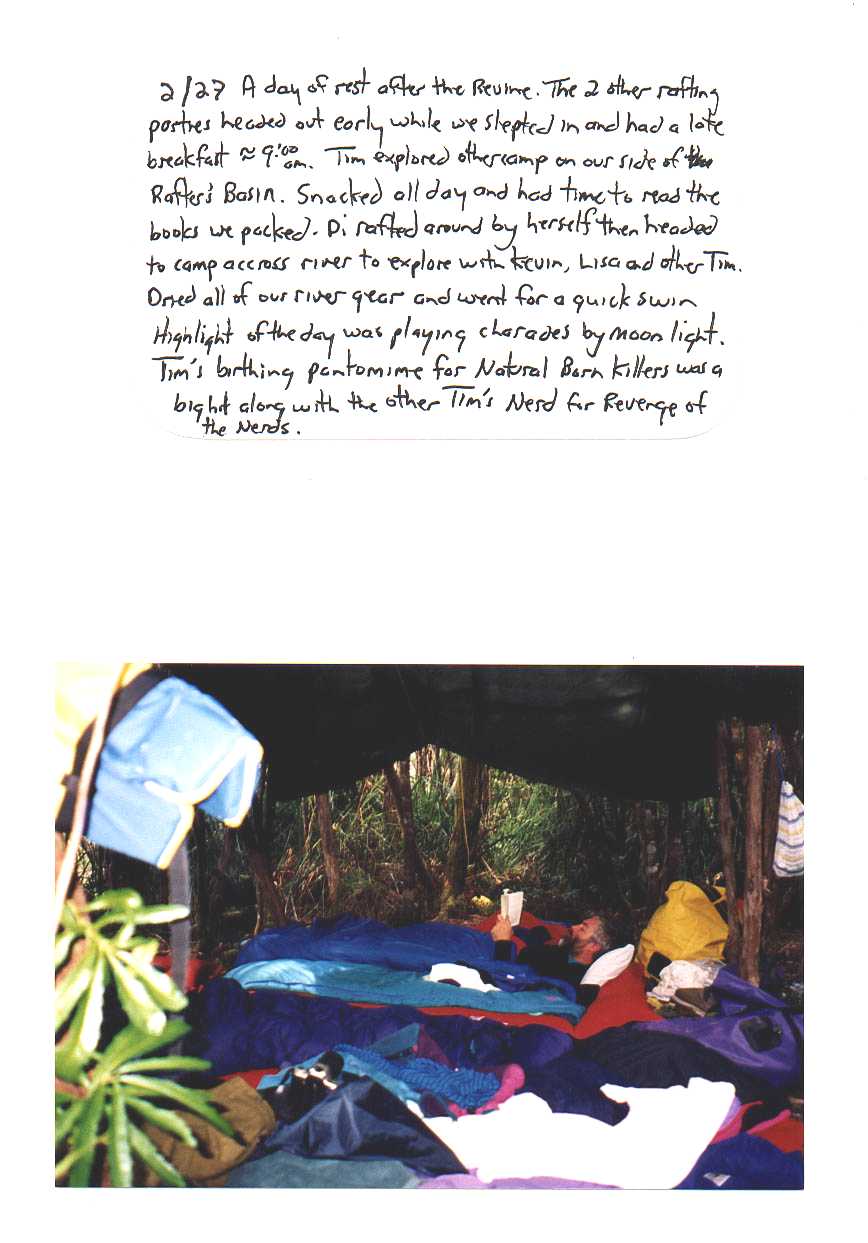 2/27 A day of rest after the Revine. The 2 other rafting
partres headed out early while we slepted in and had a late
breakfast ≈ 9:00 am. Tim explored other camp on our side of the
Rafter's Basin. Snacked all day and had time to read the
books we packed. Di rafted around by herself then headed
to camp accross river to explore with Kevin, Lisa and other Tim.
Dried all of our river gear and went for a quick swim
Highlight of the day was playing charades by moon light.
Tim's birthing pantomime for Natural Born Killers was a
big hit along with the other Tim's Nerd for Revenge of
the Nerds.